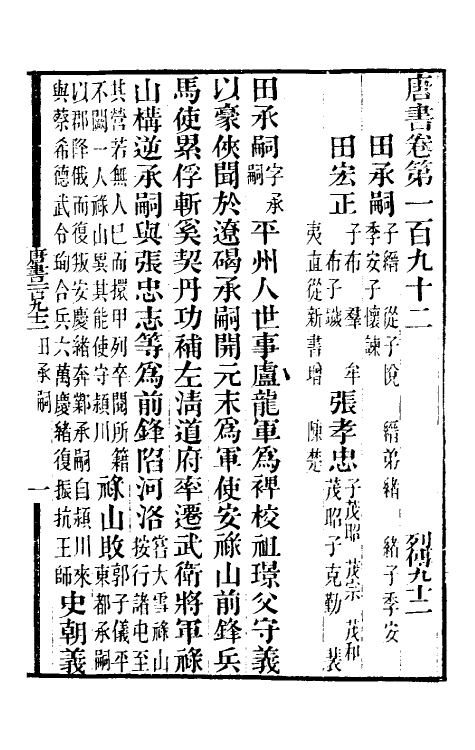 唐書卷第一百九十二 列傳九十二
田承嗣 子縉 從子悅 縉弟緒 緒子季安
季安子懷諫
田宏正 子布 羣 牟
布子 
張孝忠 子茂昭 茂宗 茂和
茂昭子克勤 裴
夷直從新書增 陳楚
田承嗣 字承
嗣 平州人世事盧龍軍爲裨校祖璟父守義
以豪俠聞於遼碣承嗣開元末爲軍使安祿山前鋒兵
馬使累俘斬奚契丹功補左淸道府率遷武衛將軍祿
山構逆承嗣與張忠志等爲前鋒陷河洛 嘗大雪祿山
按行諸屯至
其營若無人已而擐甲列卒閱所籍
不闕一人祿山異其能使守潁川
祿山敗 郭子儀平
東都承嗣
以郡降俄而復叛安慶緒奔鄴承嗣自潁川來
與蔡希德武令珣合兵六萬慶緒復振抗王師
史朝義
唐書一百九十二 田承嗣 一